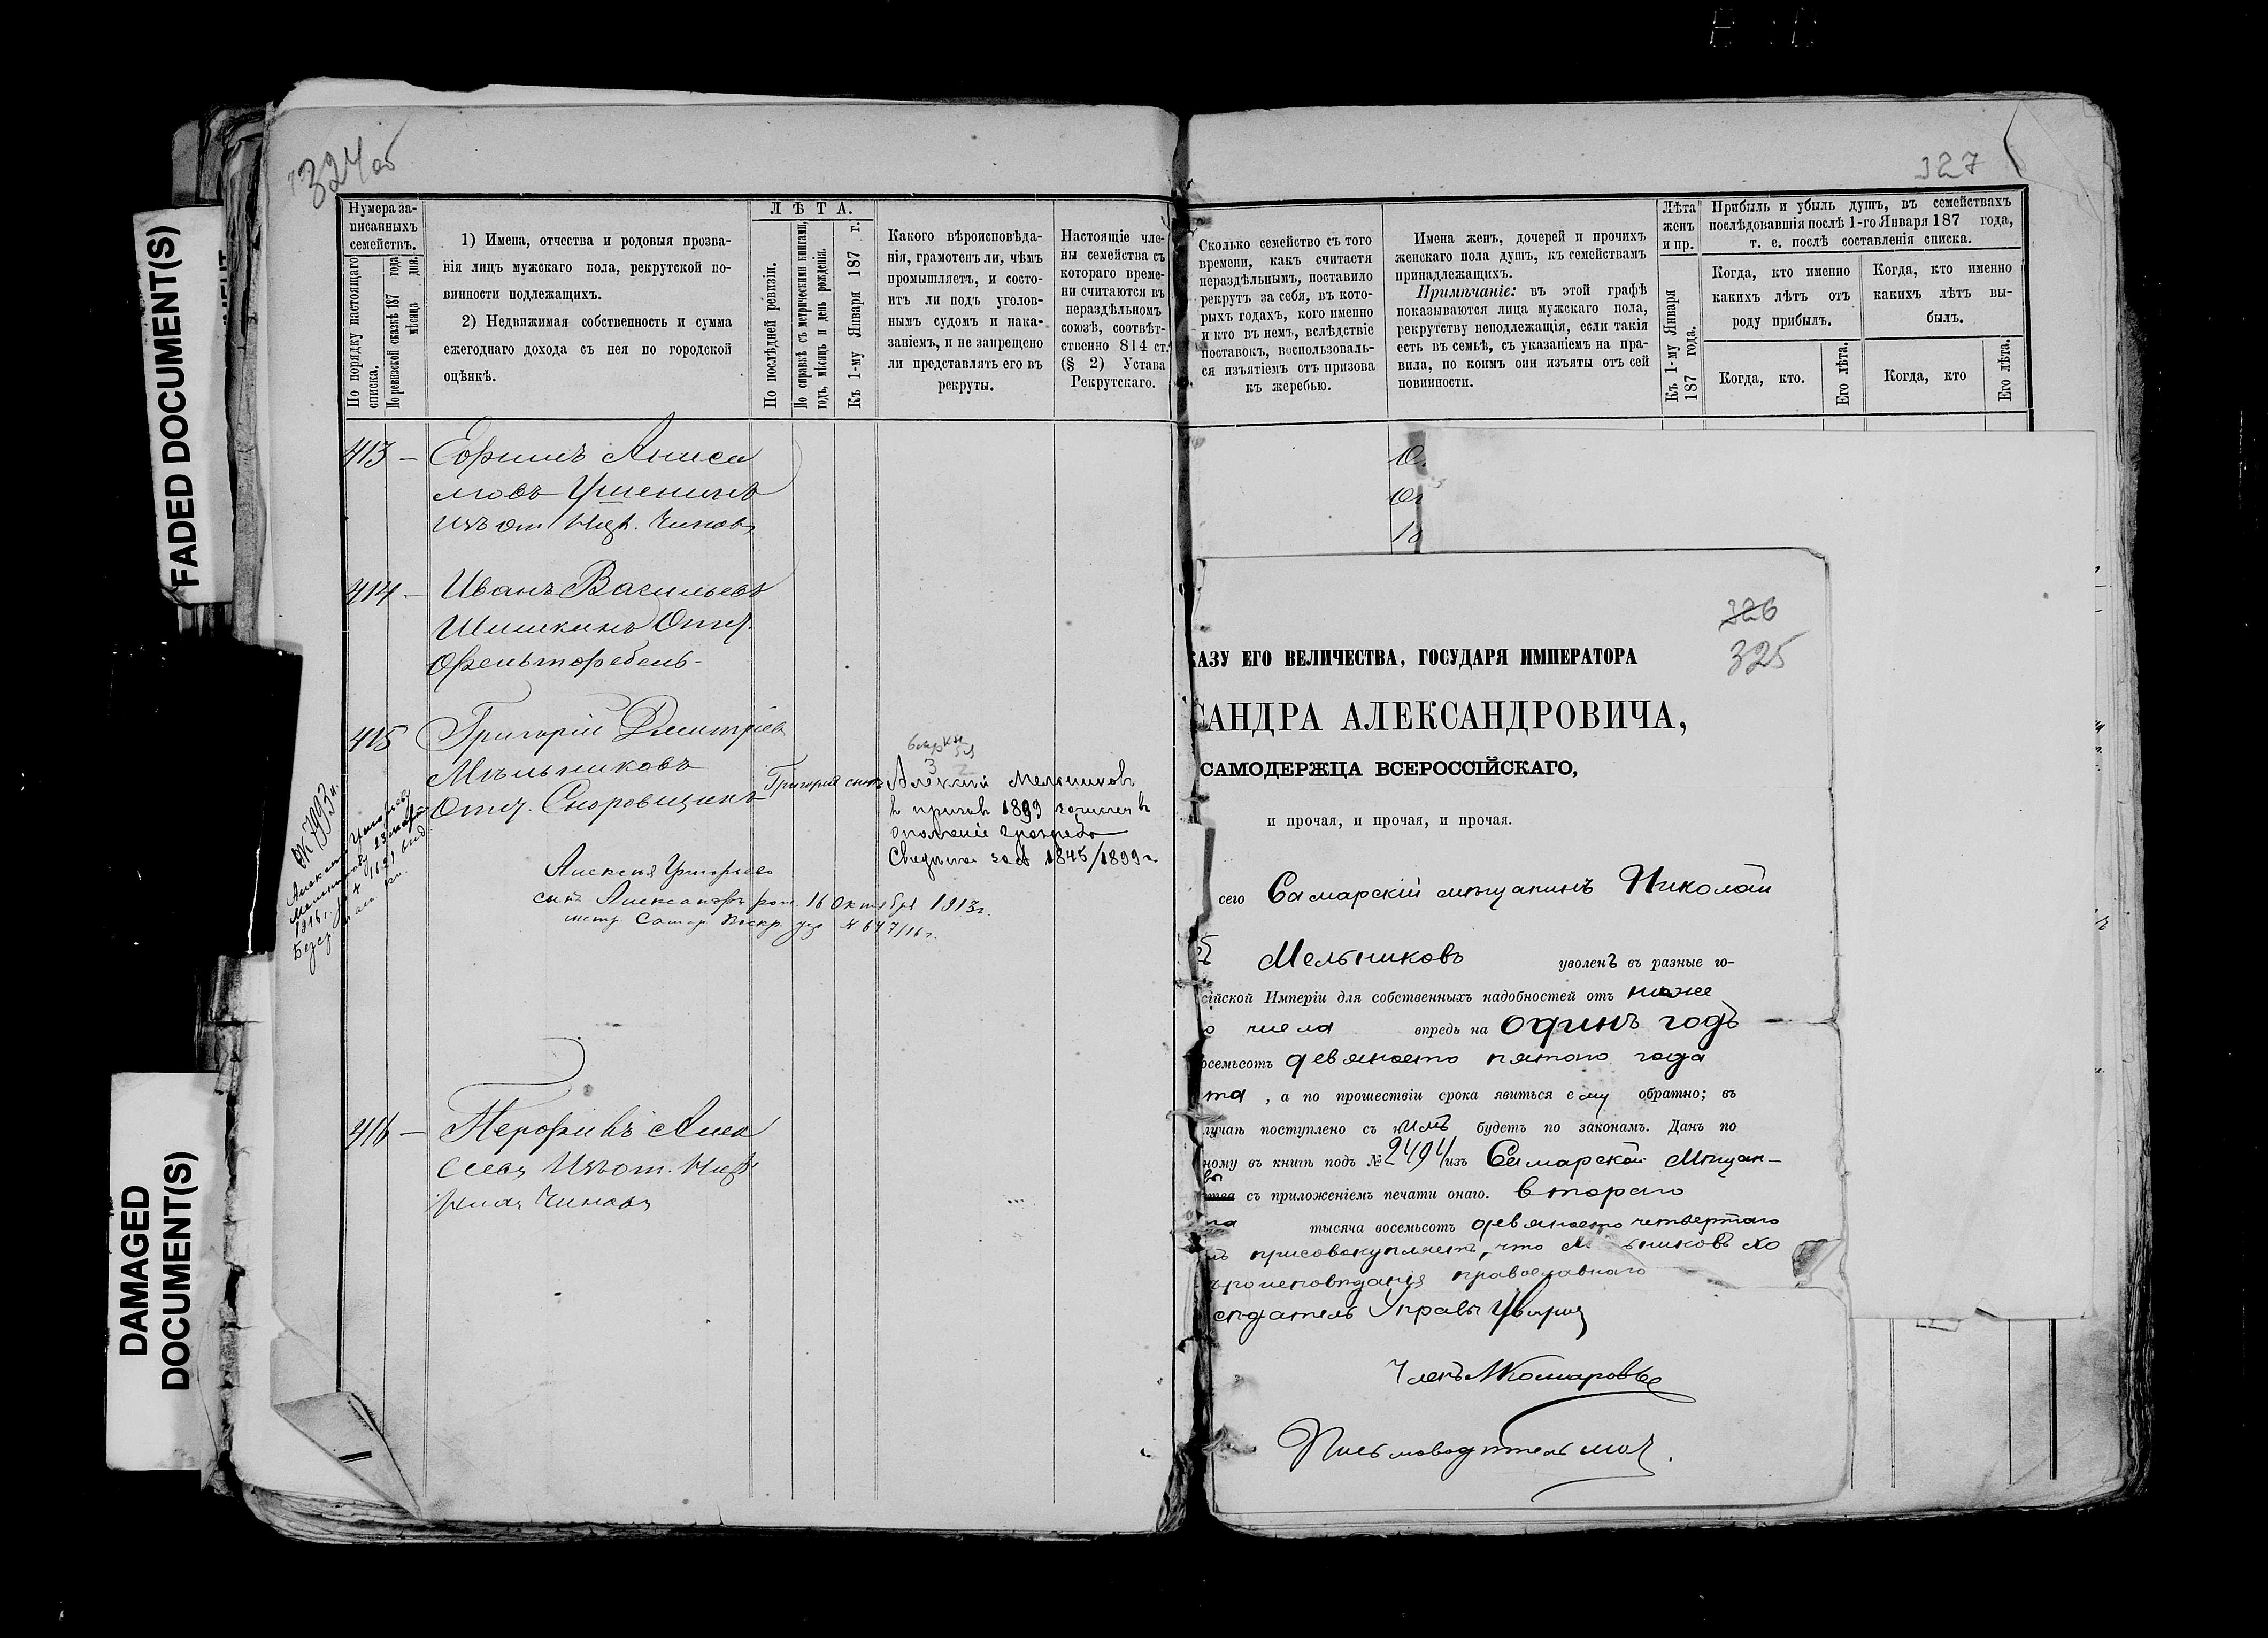 FADED DOCUMENT(S)
DAMAGED
DOCUMENT(S)
324 об
Нумера за-
писанныхъ
семействъ.
По порядку настоящаго
списка.
По ревизской сказкѣ 187 года
мѣсяца дня.
1) Имена, отчества и родовыя прозва-
нія лицъ мужскаго пола, рекрутской по-
винности подлежащихъ.
2) Недвижимая собственность и сумма
ежегоднаго дохода съ нея по городской
оцѣнкѣ.
ЛѢТА.
По послѣдней ревизіи.
По справкѣ съ метрическими книгами,
годъ, мѣсяцъ и день рожденія.
Къ 1-му Января 187 г.
Какого вѣроисповѣда-
нія, грамотенъ ли, чѣмъ
промышляетъ, и состо-
итъ ли подъ уголов-
нымъ судомъ и нака-
заніемъ, и не запрещено
ли представлять его въ
рекруты.
Настоящіе чле-
ны семейства съ
котораго време-
ни считаются въ
нераздѣльномъ
союзѣ, соотвѣт-
ственно 814 ст.
(§ 2) Устава
Рекрутскаго.
413 — Ефимъ Аниси
мовъ
изъ от. Ниж. Чиновъ
414 — Иванъ Васильевъ
Шишкинъ Отст.
Фельтфебель
415 Григорій Дмитріев
Мельниковъ
Отст.
Григорія сынъ Алексѣй Мельников
в призыв 1899 зачислен в
ополченіе 2 разряда
Свидѣт за № 1845/1899 г.
Алексѣя Григорьева
сынъ Александръ род. 16 Октября 1913 г.
метр. Самар. Воскр. № 647/16 г.
416 —
Изъ от. Ниж
нихъ Чиновъ
327
Сколько семейство съ того
времени, какъ считается
нераздѣльнымъ, поставило
рекрутъ за себя, въ кото-
рыхъ годахъ, кого именно
и кто въ немъ, вслѣдствіе
поставокъ, воспользовалъ-
ся изъятіемъ отъ призова
къ жеребью.
Имена женъ, дочерей и прочихъ
женскаго пола душъ, къ семействамъ
принадлежащихъ.
Примѣчаніе: въ этой графѣ
показываются лица мужскаго пола,
рекрутству неподлежащія, если такія
есть въ семьѣ, съ указаніемъ на пра-
вила, по коимъ они изъяты отъ сей
повинности.
Лѣта
женъ
и пр.
Къ 1-му Января
187 года.
Прибыль и убыль душъ, въ семействахъ
послѣдовавшія послѣ 1-го Января 187 года,
т. е. послѣ составленія списка.
Когда, кто именно
какихъ лѣтъ отъ
роду прибылъ.
Когда, кто именно
какихъ лѣтъ вы-
былъ.
Когда, кто.
Его лѣта.
Когда, кто
Его лѣта.
326
325
КАЗУ ЕГО ВЕЛИЧЕСТВА, ГОСУДАРЯ ИМПЕРАТОРА
САНДРА АЛЕКСАНДРОВИЧА,
САМОДЕРЖЦА ВСЕРОССІЙСКАГО,
и прочая, и прочая, и прочая.
сего Самарскій мѣщанинъ Николай
Мельниковъ уволенъ въ разные го-
сійской Имперіи для собственныхъ надобностей отъ ниже
числа впредь на одинъ годъ
осемьсотъ девяносто пятого года
та, а по прошествіи срока явиться ему обратно; въ
лучаѣ поступлено съ нимъ будетъ по законамъ. Данъ по
ному въ книгѣ подъ № 2494 изъ Самарской Мѣщан-
съ приложеніемъ печати онаго. второго
тысяча восемьсотъ девяносто четвертаго
присовокупляетъ, что М ьниковъ хо
ѣроисповѣданія православнаго
сѣдатель Управы
Членъ Комаровъ
Письмоводитель